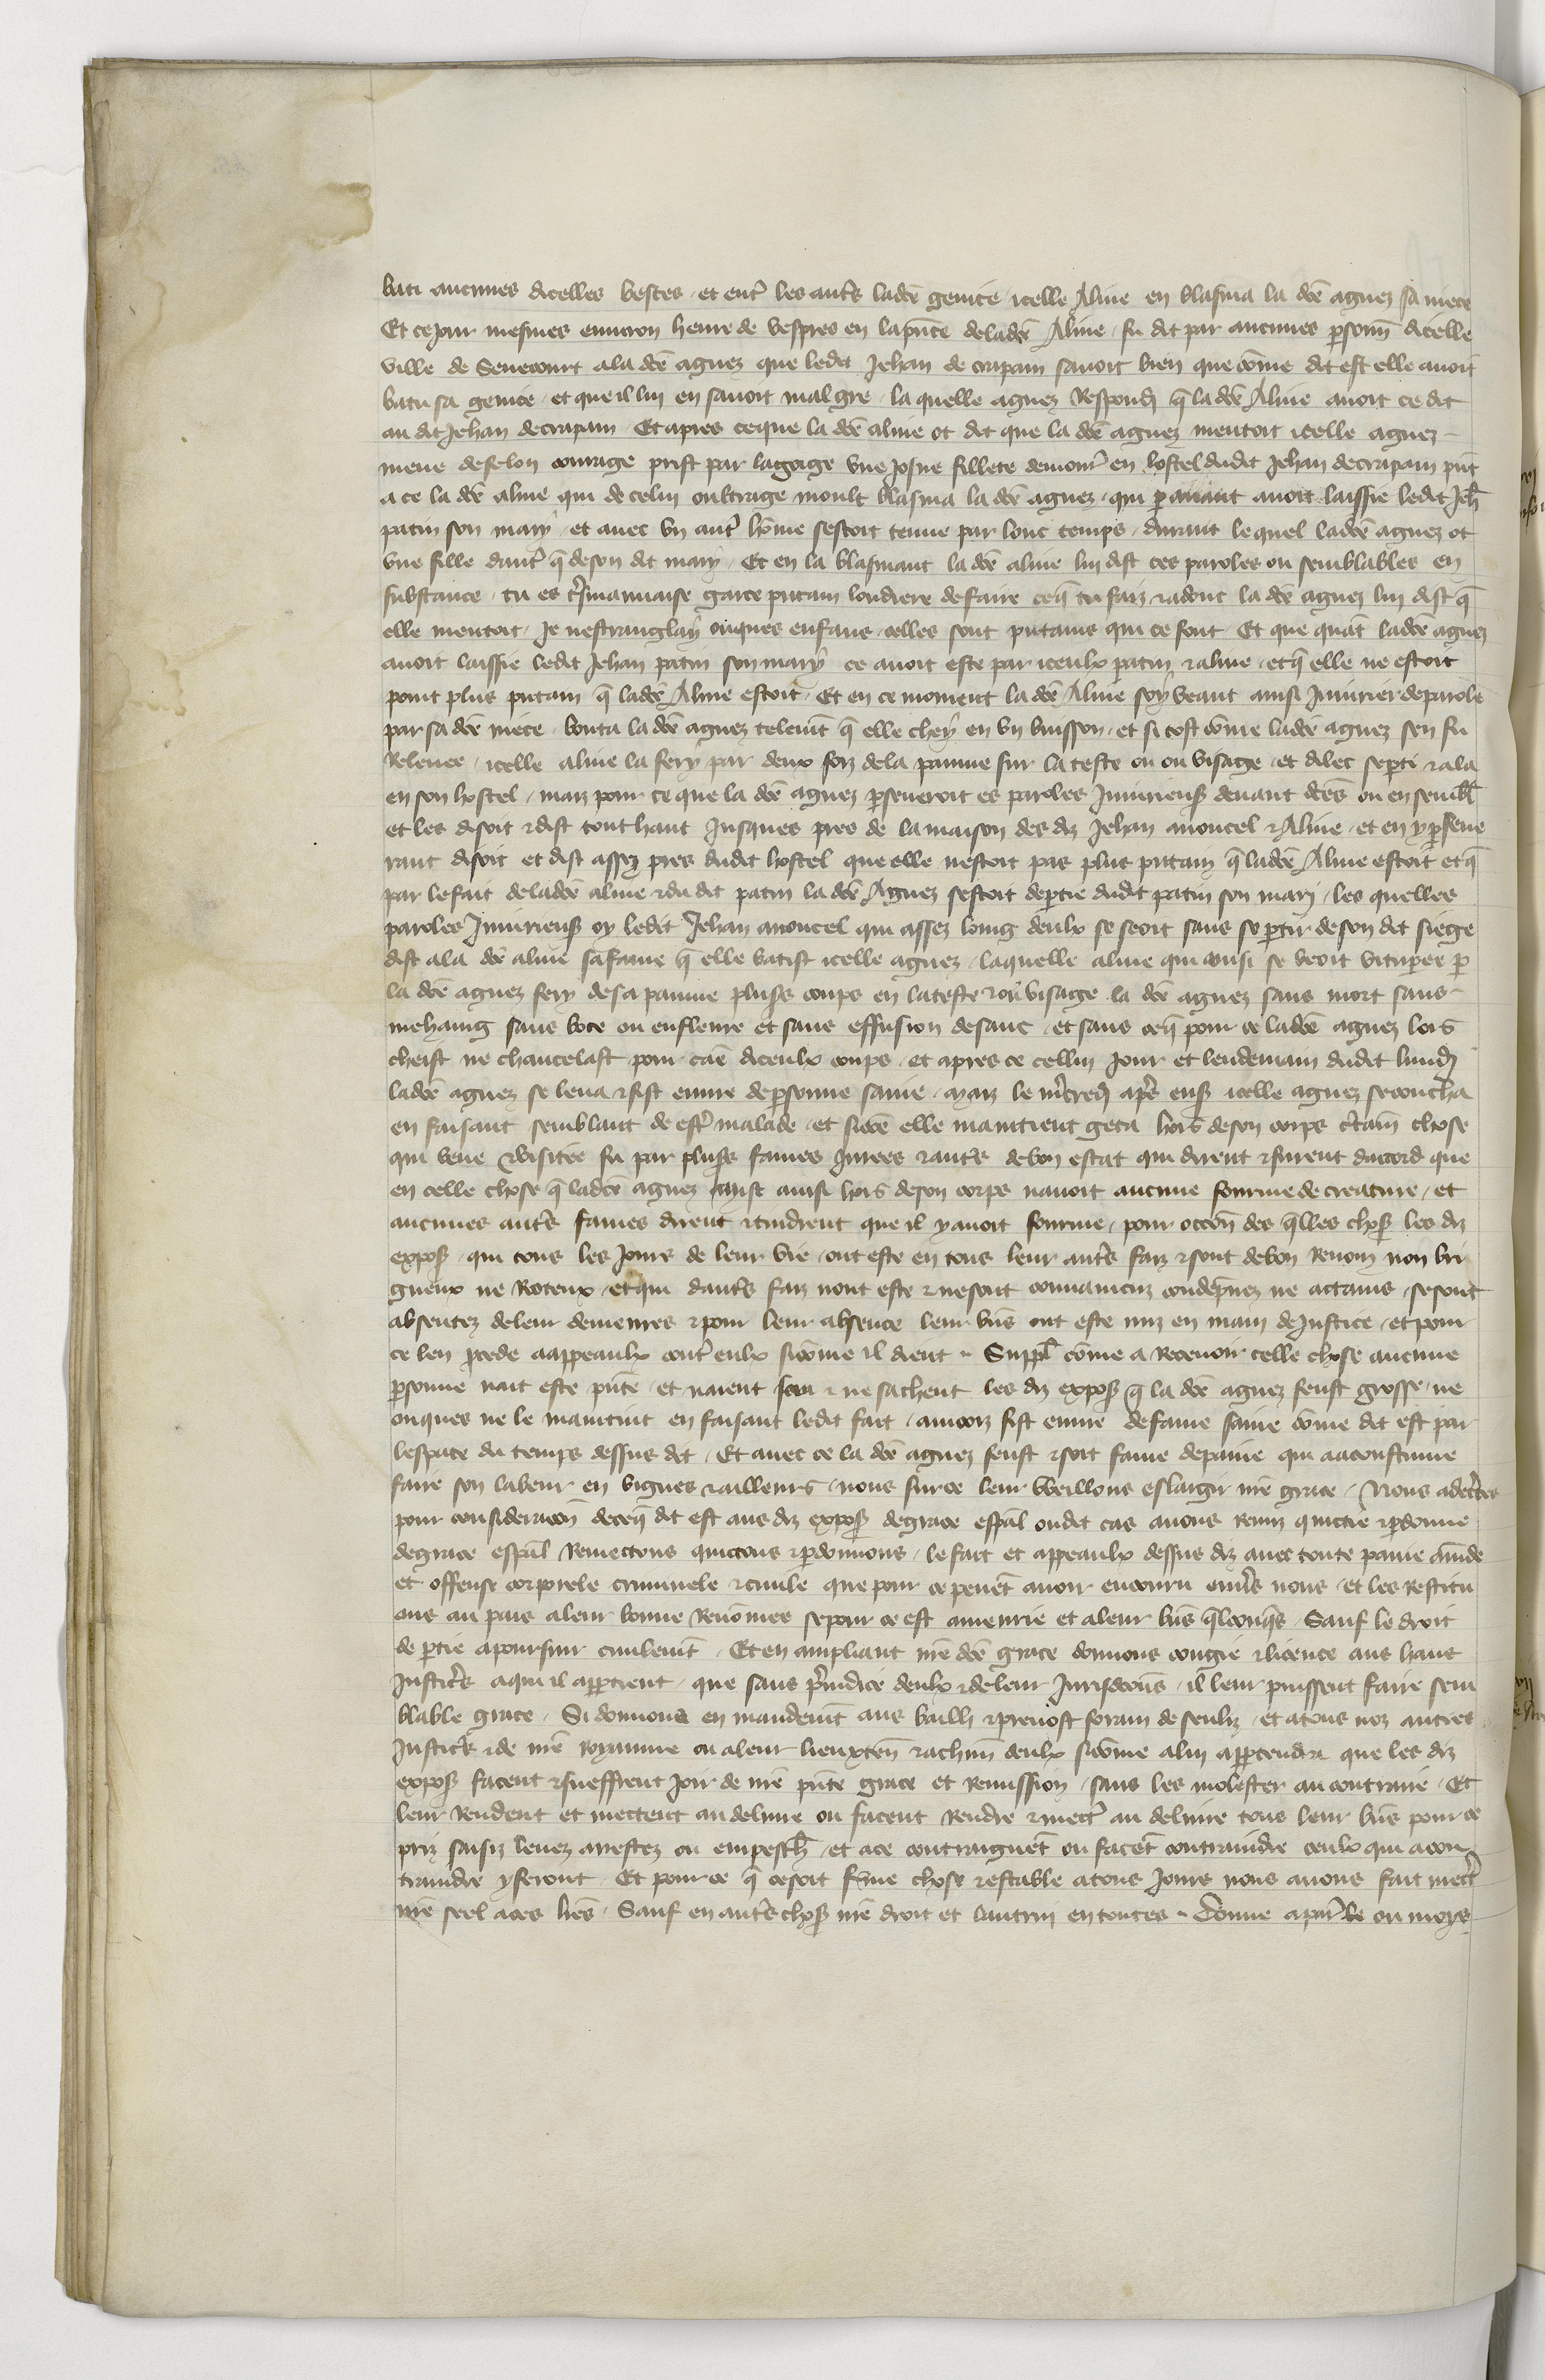 bati aucunes dicelles bestes et entr̃ les autr̃s ladcẽ genice icelle Aline en blasma la dcẽ agnez sa niece
Et ce jour mesmes environ heure de vespres en lapñce deladcẽ Aline fu dit par aucunes ꝑsonñ dicelle
ville de Senecourt ala dcẽ agnez que ledit Jehan de crapain savoit bien que cõme dit est elle avoit
batu sa genice et que il lui en savoit mal gre la quelle agnez Respondi q̃ la dcẽ Aline avoit ce dit
au dit Jehan de crapain Et apres ceque la dcẽ aline ot dit que la dcẽ agnez mentoit icelle agnez
meue defelon courage prist par lagorge une josne fillete demour̃ en lostel dudit Jehan decrapain pñt
a ce la dcẽ aline qui de celui oultrage moult blasma la dcẽ agnez qui ꝑ avant avoit laissie ledit Jeh̃
patin son mary et avec un autr̃ hõme sestoit tenue par lonc temps durant le quel ladcẽ agnez ot
une fille dautr̃ q̃ deson dit mary Et en la blasmant la dcẽ aline lui dist ces paroles ou semblables en
substance tu es tr̃smauvaise garce putain loudiere defaire ceq̃ tu faiz ⁊ adonc la dcẽ agnez lui dist q̃
elle mentoit Je nestranglay onques enfans celles sont putains qui ce font Et que quãt ladcẽ agnez
avoit laissie ledit Jehan patin son mary ce avoit este par iceulx patin ⁊ aline et q̃ elle ne estoit
point plus putain q̃ ladcẽ Aline estoit Et en ce moment la dcẽ Aline soy veant ainsi Iniurier deparole
par sa dcẽ niece bouta la dcẽ agnez telemẽt q̃ elle chey en un buisson et si tost cõme ladcẽ agnez sen fu
Relevee icelle aline la fery par deux foiz dela paume sur la teste ou ou visage et dilec se ꝑti ⁊ ala
en son hostel maiz pour ce que la dcẽ agnez ꝑseveroit es paroles Iniurieus̃ devant dcẽs ou en sembl̃
et les disoit ⁊ dist tout haut Jusques pres de la maison des diz Jehan anoucel ⁊ Aline et en y ꝑseve
rant disoit et dist assez pres dudit hostel que elle nestoit pas plus putain q̃ ladcẽ Aline estoit et q̃
par le fait deladcẽ aline ⁊ du dit patin la dcẽ Agnez sestoit deꝑtie dudit patin son mari les quelles
paroles Iniurieus̃ oy ledit Jehan anoucel qui assez loing deulx se seoit sans se ꝑtir de son dit siege
dist ala dcẽ aline safame q̃ elle batist icelle agnez laquelle aline qui ainsi se veoit vituperee ꝑ
la dcẽ agnez fery de sa paume plusẽs coups en lateste ⁊ ou visage la dcẽ agnez sans mort sans
mehaing sans boce ou enfleure et sans effusion desanc et sans ceq̃ pour ce ladcẽ agnez lors
cheist ne chancelast pour caẽ diceulx coups et apres ce cellui jour et lendemain dudit lundi
ladcẽ agnez se leva ⁊ fist euvre de ꝑsonne saine maiz le mercredi apr̃s ens̃ icelle agnez secoucha
en faisant semblant de estr̃ malade et sicõe elle maintient geta hors deson corps c̃tain chose
qui veue ⁊ visitee fu par plusẽs fames jurees ⁊ autr̃s debon estat qui dirent ⁊ furent dacord que
en celle chose q̃ ladcẽ agnez mist ainsi hors deson corps navoit aucune fourme de creature et
aucunes autr̃s fames dirent ⁊ tindrent que il yavoit fourme pour occoñ des q̃lles chos̃ les diz
expos̃ qui tous les jours de leur vie ont este en tous leur autr̃s faiz ⁊ sont debon Renom non bri
gueux ne Roteux et qui dautr̃s faiz nont este ⁊ nesont convaincuz condẽpnez ne attains sesont
absentez deleur demeures ⁊ pour leur absence leur biẽs ont este miz en main deJustice et pour
ce len ꝓcede aappeaulx contr̃ eulx sicõme il dient Suppl̃ cõme a Recevoir celle chose aucune
ꝑsonne nait este pñte et naient sceu ⁊ ne sachent les diz expos̃ q̃ la dcẽ agnez feust grosse ne
onques ne le maintint en faisant ledit fait aincoiz fist euvre defame saine cõme dit est par
lespace du temps dessus dit Et avec ce la dcẽ agnez feust ⁊ soit fame depaine qui aacoustume
faire son labeur en vignes ⁊ ailleurs nous sur ce leur weillons eslargir nr̃e grace Nous adecertes
pour consideracoñ deceq̃ dit est aus diz expos̃ degrace esp̃al oudit cas avons Remiz quictie ⁊ ꝑdonne
degrace esp̃al Remectons quictons ⁊ ꝑdonnons le fait et appeaulx dessus diz avec toute paine amẽde
et offense corporele criminele ⁊ civile que pour ce pevẽt avoir encouru env̾s nous et les Restitu
ons au pais aleur bonne Renõmee sepour ce est amenrie et aleur biẽs q̃lconq̃s Sauf le droit
de ꝑtie apoursuir civilemẽt Et en ampliant nr̃e dcẽ grace donnons congie ⁊ licence aus haus
Justicr̃s aqui il aꝑtient que sans p̃iudice deulx ⁊ deleur Jurisdcõns il leur puissent faire sem
blable grace Si donnons en mandemẽt aus bailli ⁊ prevost forain de senliz et atous noz autres
Justicr̃s ⁊ de nr̃e Royaume ou aleur lieuxteñ ⁊ achũn deulx sicõme alui aꝑtendra que les diz
expos̃ facent ⁊ sueffrent joir de nr̃e pñte grace et Remission sans les molester au contraire Et
leur Rendent et mectent au delivre ou facent Rendre ⁊ mectr̃ au delivre tous leur biẽs pour ce
priz saisiz levez arrestez ou empesch̃ et ace contraignẽt ou facẽt contraindre ceulx qui acon
traindre yseront Et pour ce q̃ cesoit ferme chose ⁊ estable atous jours nous avons fait mectr̃
nr̃e seel aces lr̃es Sauf en autr̃s chos̃ nr̃e droit et lautrui en toutes Donne a ou moys